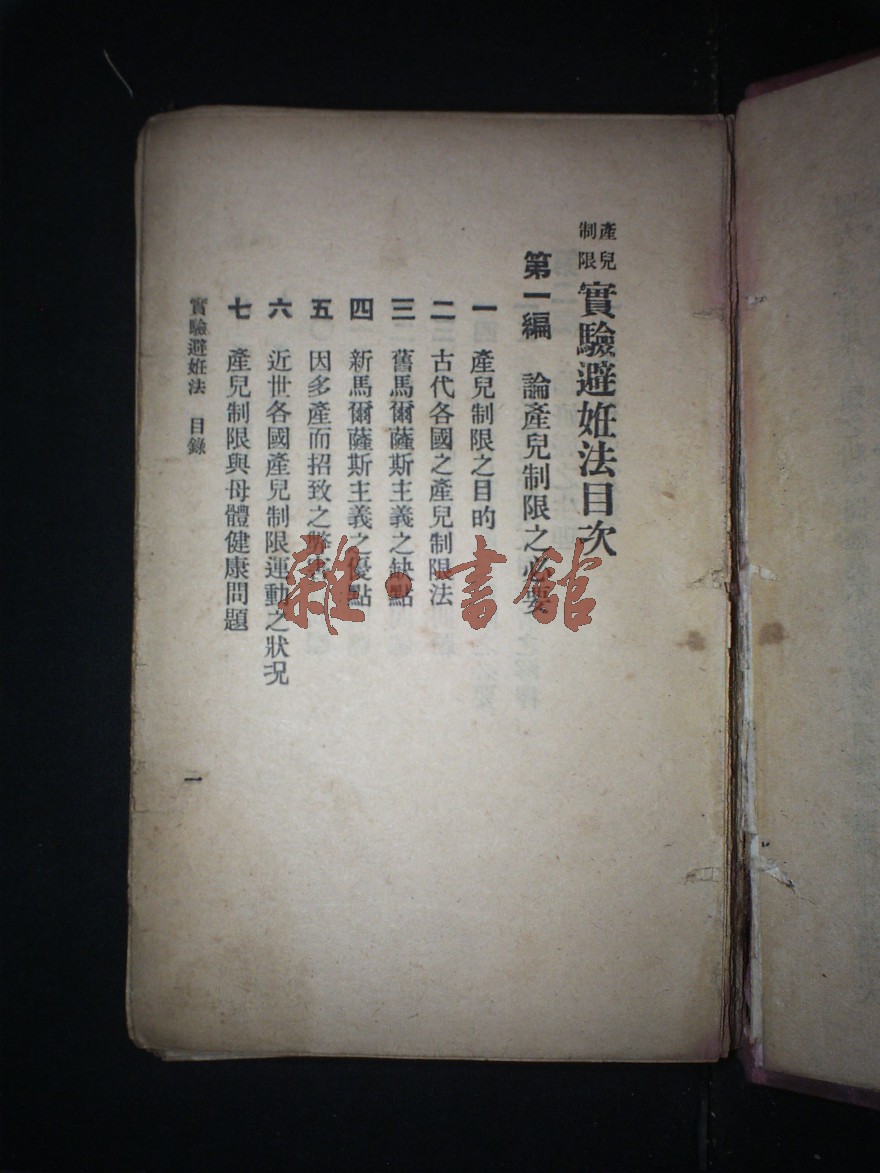 產兒制限 實驗避姙法目次
第一編 論產兒制限之必要
一 產兒制限之目的
二 古代各國之產兒制限法
三 舊馬爾薩斯主義之缺點
四 新馬爾薩斯主義之優點
五 因多產而招致之弊害
六 近世各國產兒制限運動之狀況
七 產兒制限與母體健康問題
實驗避姙法 目錄
一
雜·書館